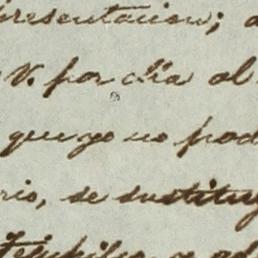 presentacion; a
V. por ella al
que yo no pod
rio, se sustituy